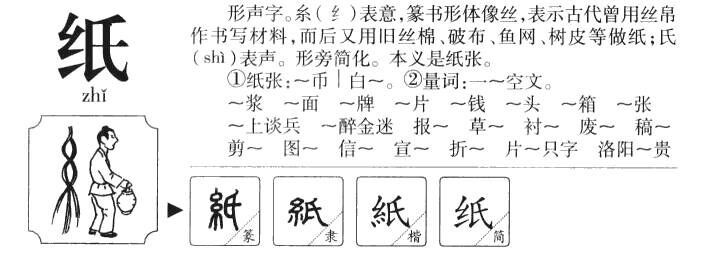 纸
zhǐ
形声字。糸(纟)表意,篆书形体像丝,表示古代曾用丝帛
作书写材料,而后又用旧丝棉、破布、鱼网、树皮等做纸;氏
(shì)表声。形旁简化。本义是纸张。
①纸张:～币│白～。②量词:一～空文。
～浆 ～面 ～牌 ～片 ～钱 ～头 ～箱 ～张
～上谈兵 ～醉金迷 报～ 草～ 衬～ 废～ 稿～
剪～ 图～ 信～ 宣～ 折～ 片～只字 洛阳～贵
紙 篆 紙 隶 紙 楷 纸 简